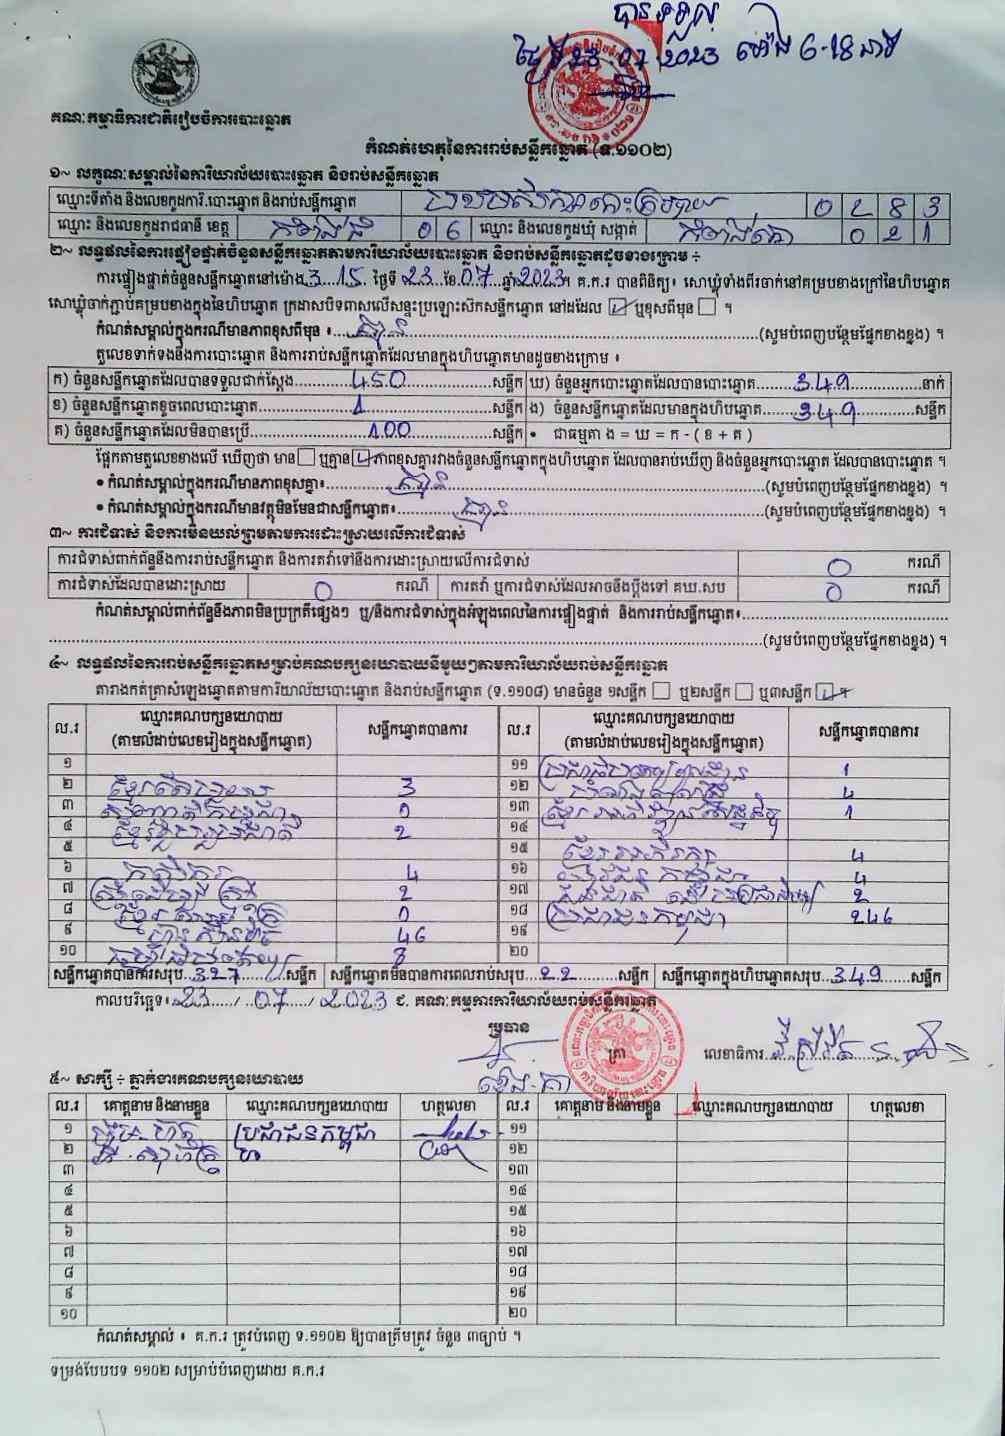 បានទទួល
ថ្ងៃទី 23.07.2023 ម៉ោង 6-18 នាទី
គណៈកម្មាធិការជាតិរៀបចំការបោះឆ្នោត
កំណត់ហេតុនៃការរាប់សន្លឹកឆ្នោត (ទ.១១០២)
១~ លក្ខណៈសម្គាល់នៃការិយាល័យបោះឆ្នោត និងរាប់សន្លឹកឆ្នោត
ឈ្មោះទីតាំង និងលេខកូដការិ.បោះឆ្នោត និងរាប់សន្លឹកឆ្នោត 0 2 8 3
ឈ្មោះ និងលេខកូដរាជធានី ខេត្ត កំពង់ធំ 0 6 ឈ្មោះ និងលេខកូដឃុំ សង្កាត់ កំពង់គោ 0 2 1
២~ លទ្ធផលនៃការផ្ទៀងផ្ទាត់ចំនួនសន្លឹកឆ្នោតតាមការិយាល័យបោះឆ្នោត និងរាប់សន្លឹកឆ្នោតដូចខាងក្រោម ÷
ការផ្ទៀងផ្ទាត់ចំនួនសន្លឹកឆ្នោតនៅម៉ោង 3 15 ថ្ងៃទី 23 ខែ 07 ឆ្នាំ 2023។ គ.ក.រ បានពិនិត្យ៖ សោឃ្លុំទាំងពីរចាក់នៅគម្របខាងក្រៅនៃហិបឆ្នោត
សោឃ្លុំចាក់ភ្ជាប់គម្របខាងក្នុងនៃហិបឆ្នោត ក្រដាសបិទពាសលើសន្ទះប្រឡោះស៊កសន្លឹកឆ្នោត នៅដដែល ឬខុសពីមុន ។
កំណត់សម្គាល់ក្នុងករណីមានភាពខុសពីមុន ៖ គ្មាន (សូមបំពេញបន្ថែមផ្នែកខាងខ្នង) ។
តួលេខទាក់ទងនឹងការបោះឆ្នោត និងការរាប់សន្លឹកឆ្នោតដែលមានក្នុងហិបឆ្នោតមានដូចខាងក្រោម ៖
ក) ចំនួនសន្លឹកឆ្នោតដែលបានទទួលជាក់ស្តែង 450 សន្លឹក ឃ) ចំនួនអ្នកបោះឆ្នោតដែលបានបោះឆ្នោត 349 នាក់
ខ) ចំនួនសន្លឹកឆ្នោតខូចពេលបោះឆ្នោត 1 សន្លឹក ង) ចំនួនសន្លឹកឆ្នោតដែលមានក្នុងហិបឆ្នោត 349 សន្លឹក
គ) ចំនួនសន្លឹកឆ្នោតដែលមិនបានប្រើ 100 សន្លឹក • ជាធម្មតា ង = ឃ = ក - ( ខ + គ )
ផ្អែកតាមតួលេខខាងលើ ឃើញថា មាន ឬគ្មាន ភាពខុសគ្នារវាងចំនួនសន្លឹកឆ្នោតក្នុងហិបឆ្នោត ដែលបានរាប់ឃើញ និងចំនួនអ្នកបោះឆ្នោត ដែលបានបោះឆ្នោត ។
• កំណត់សម្គាល់ក្នុងករណីមានភាពខុសគ្នា៖ គ្មាន (សូមបំពេញបន្ថែមផ្នែកខាងខ្នង) ។
• កំណត់សម្គាល់ក្នុងករណីមានវត្ថុមិនមែនជាសន្លឹកឆ្នោត៖ គ្មាន (សូមបំពេញបន្ថែមផ្នែកខាងខ្នង) ។
៣~ ការជំទាស់ និងការមិនយល់ព្រមតាមការដោះស្រាយលើការជំទាស់
ការជំទាស់ពាក់ព័ន្ធនឹងការរាប់សន្លឹកឆ្នោត និងការតវ៉ាទៅនឹងការដោះស្រាយលើការជំទាស់ 0 ករណី
ការជំទាស់ដែលបានដោះស្រាយ 0 ករណី ការតវ៉ា ឬការជំទាស់ដែលអាចនឹងប្តឹងទៅ គឃ.សប 0 ករណី
កំណត់សម្គាល់ពាក់ព័ន្ធនឹងភាពមិនប្រក្រតីផ្សេងៗ ឬ/និងការជំទាស់ក្នុងអំឡុងពេលនៃការផ្ទៀងផ្ទាត់ និងការរាប់សន្លឹកឆ្នោត៖
(សូមបំពេញបន្ថែមផ្នែកខាងខ្នង) ។
៤~ លទ្ធផលនៃការរាប់សន្លឹកឆ្នោតសម្រាប់គណបក្សនយោបាយនីមួយៗតាមការិយាល័យរាប់សន្លឹកឆ្នោត
តារាងកត់ត្រាសំឡេងឆ្នោតតាមការិយាល័យបោះឆ្នោត និងរាប់សន្លឹកឆ្នោត (ទ.១១០៨) មានចំនួន ១សន្លឹក ឬ២សន្លឹក ឬ៣សន្លឹក ។
ល.រ ឈ្មោះគណបក្សនយោបាយ (តាមលំដាប់លេខរៀងក្នុងសន្លឹកឆ្នោត) សន្លឹកឆ្នោតបានការ ល.រ ឈ្មោះគណបក្សនយោបាយ (តាមលំដាប់លេខរៀងក្នុងសន្លឹកឆ្នោត) សន្លឹកឆ្នោតបានការ
១ ១១ 1
២ 3 ១២ 4
៣ ១៣ 1
៤ 2 ១៤
៥ ១៥ 4
៦ កសិករ 4 ១៦ 4
៧ 2 ១៧ 2
៨ 0 ១៨ ប្រជាជនកម្ពុជា 246
៩ 46 ១៩
១០ 3 ២០
សន្លឹកឆ្នោតបានការសរុប 327 សន្លឹក សន្លឹកឆ្នោតមិនបានការពេលរាប់សរុប 22 សន្លឹក សន្លឹកឆ្នោតក្នុងហិបឆ្នោតសរុប 349 សន្លឹក
កាលបរិច្ឆេទ៖ 23 / 07 / 2023 ជ. គណៈកម្មការការិយាល័យរាប់សន្លឹកឆ្នោត
ប្រធាន ត្រា លេខាធិការ
៥~ សាក្សី ÷ ភ្នាក់ងារគណបក្សនយោបាយ
ល.រ គោត្តនាម និងនាមខ្លួន ឈ្មោះគណបក្សនយោបាយ ហត្ថលេខា ល.រ គោត្តនាម និងនាមខ្លួន ឈ្មោះគណបក្សនយោបាយ ហត្ថលេខា
១ ប្រជាជនកម្ពុជា ១១
២ ១២
៣ ១៣
៤ ១៤
៥ ១៥
៦ ១៦
៧ ១៧
៨ ១៨
៩ ១៩
១០ ២០
កំណត់សម្គាល់ ៖ គ.ក.រ ត្រូវបំពេញ ទ.១១០២ ឱ្យបានត្រឹមត្រូវ ចំនួន ៣ច្បាប់ ។
ទម្រង់បែបបទ ១១០២ សម្រាប់បំពេញដោយ គ.ក.រ